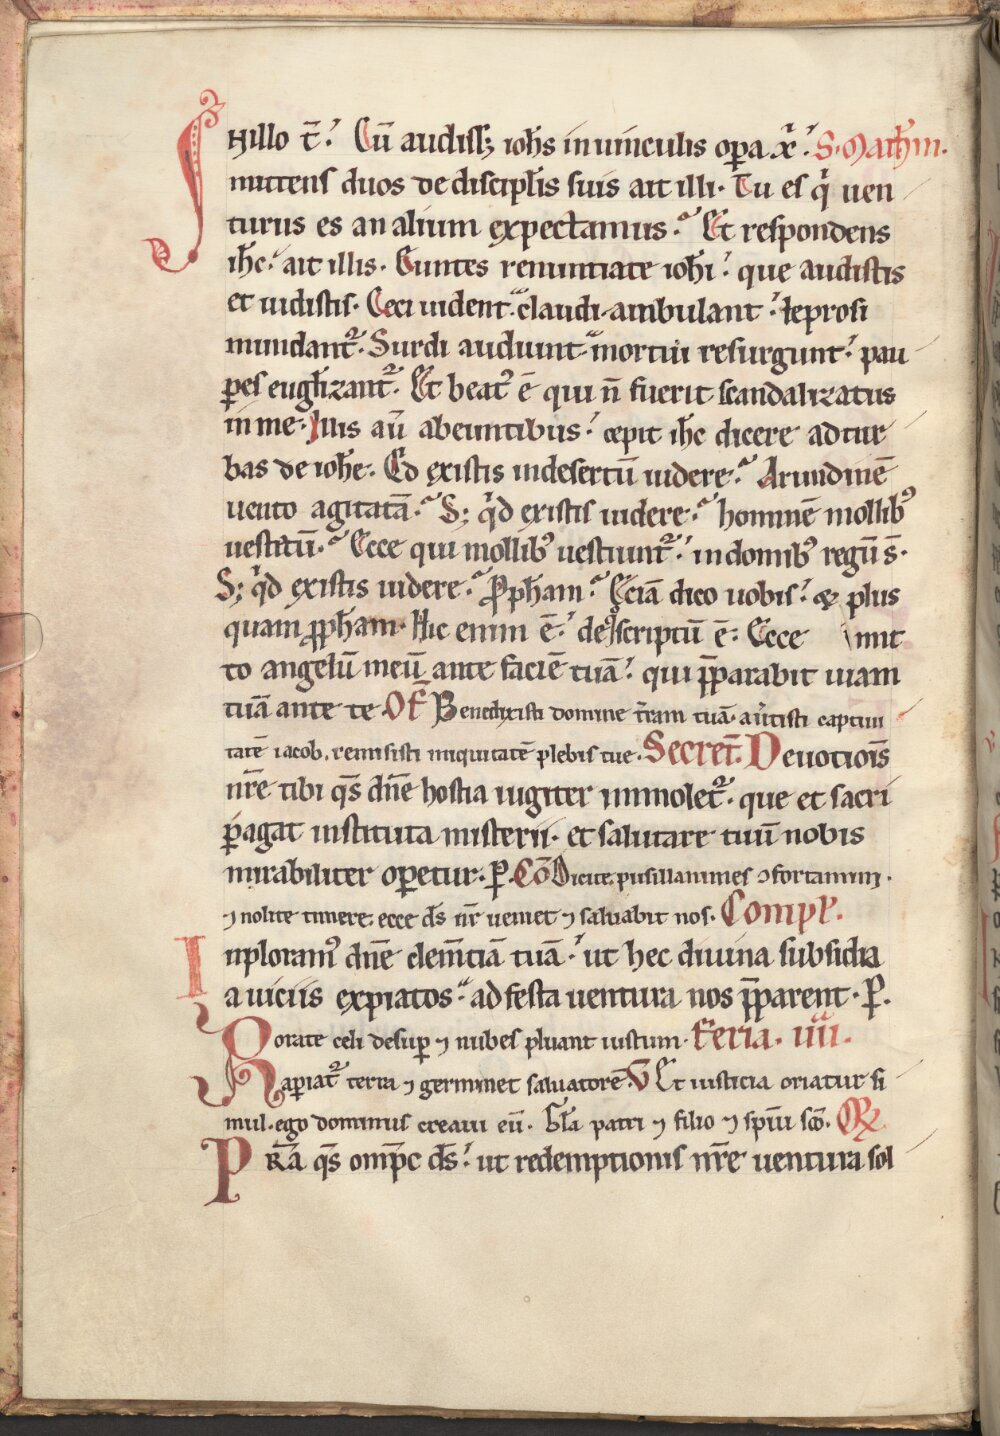 Inillo t̄. Cū audiss; ioħs in uinculis oꝑa xͥ. S. Mathm̄.
mittens duos de discipl̄is suis ait illi. Tu es qͥ uen
turus es an alium expectamus. Et respondens
iħc. ait illis. Euntes renuntiate ioħi. que audistis
et uidistis. Ceci uident. claudi ambulant. leprosi
mundant᷑. Surdi audiunt. mortui resurgunt. pau
ꝑes eugl̄izant᷑. Et beatꝰ ē qui n̄ fuerit scandalizatus
in me. Illis aū abeuntibus. cepit iħc dicere ad tur
bas de ioħe. Qd existis in desertū uidere. Arundinē
uento agitatā. S; qͥd existis uidere. hominē mollibꝰ
uestitū. Ecce qui mollibꝰ uestiunt᷑. in domibꝰ regū s̄.
S; qͥd existis uidere. Ꝓpħam. Eciā dico uobis. & plus
quam ꝓpħam. Hic enim ē. de qͦ scriptū ē. Ecce mit
to angelū meū ante faciē tuā. qui p̄parabit uiam
tuā ante te. Of̄ Benedixisti domine t̄ram tuā. auͥtisti captiui
tatē iacob. remisisti iniquitatē plebis tue. Secret̄. Deuotiōis
nr̄e tibi qs̄ dn̄e hostia iugiter immolet᷑. que et sacri
ꝑagat instituta misterii. et salutare tuū nobis
mirabiliter oꝑetur. P̱. Cō Dicite pusillanimes ꝯfortamini.
⁊ nolite timere. ecce ds̄ nr̄ ueniet ⁊ saluabit nos. Compl̄.
Inploramꝰ dn̄e clem̄tiā tuā. ut hec diuina subsidia
a uiciis expiatos. ad festa uentura nos p̄parent. P̱.
Rorate celi desuꝑ ⁊ nubes pluant iustum. Feria. iiii.
Aꝑiat᷑ terra ⁊ germinet saluatorē. V̄ Et iusticia oriatur si
mul. ego dominus creaui eū. Gl̄a patri ⁊ filio ⁊ spiui scō. Or̄
Pra qs̄ omp̄c ds̄. ut redemptionis nr̄e uentura sol